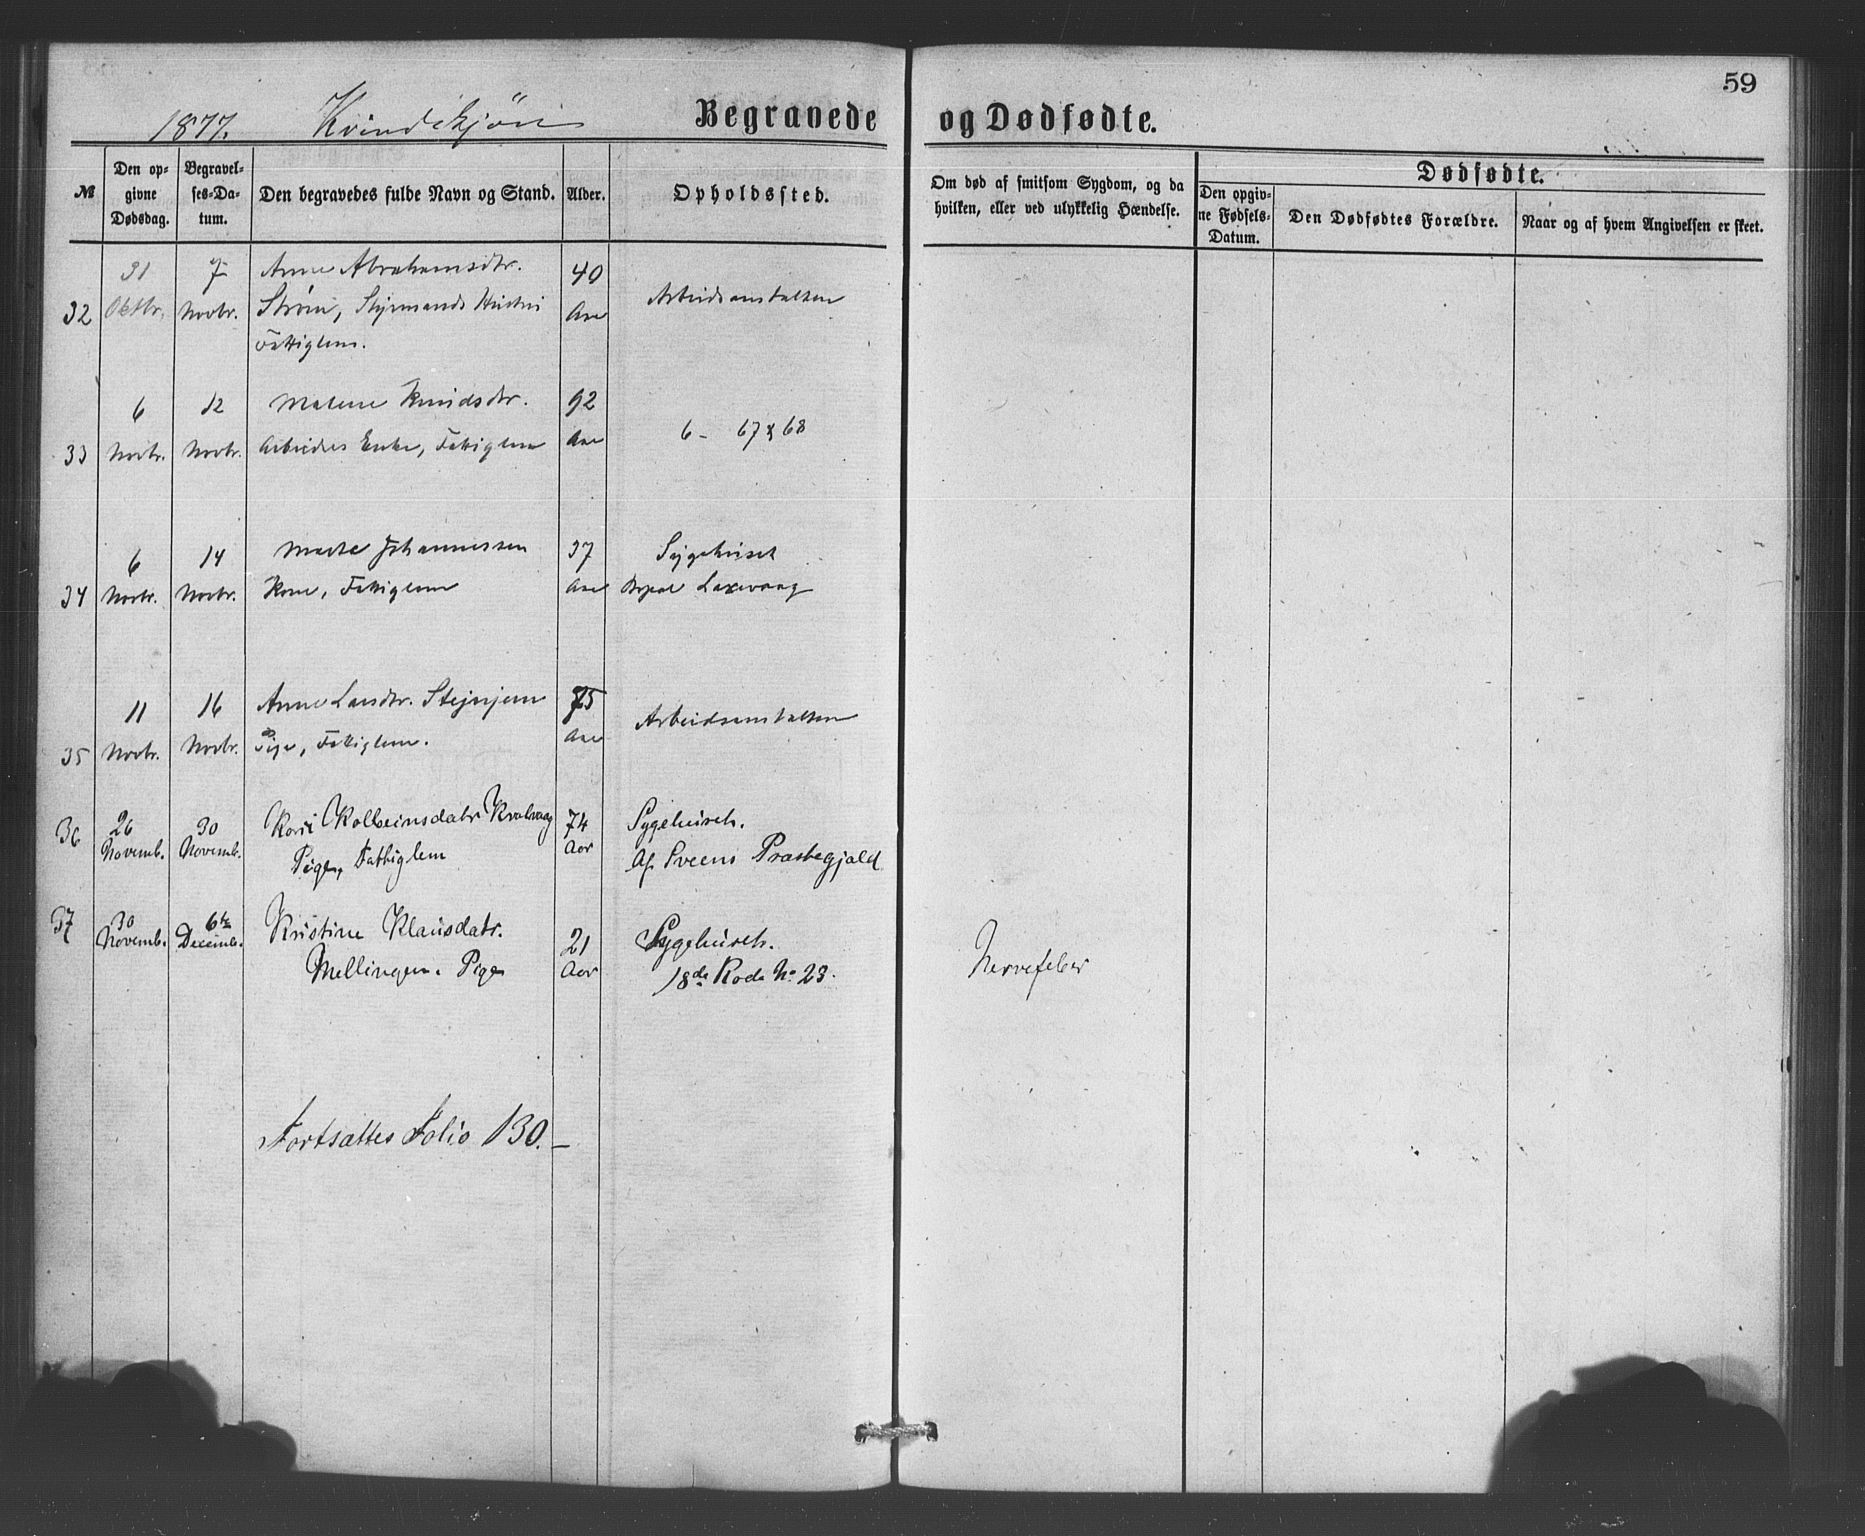 59
1877. Kvindekjøn Begravede og Dødfødte.
№
Den opgivne Dødsdag.
Begravelses-Datum.
Den begravedes fulde Navn og Stand.
Alder.
Opholdssted.
Om død af smitsom Sygdom, og da hvilken, eller ved ulykkelig Hændelse.
Dødfødte.
Den opgivne Fødsels-Datum.
Den Dødfødtes Forældre.
Naar og af hvem Angivelsen er skeet.
31 7 Anne Abrahamsdtr. 40
32 Oktbr. Novbr. Strøm, Styrmands Hustru Aar Arbeidsanstalten
Fattiglem.
6 12 Malene Knudsdtr. 92
33 Novbr. Novbr. Arbeiders Enke, Fattiglem Aar 6 - 67 & 68
6 14 Marte Johannessen 37 Sygehuset
34 Novbr. Novbr. Kone, Fattiglem Aar Laxevaag
11 16 Anne Larsdtr. 75 Arbeidsanstalten
35 Novbr. Novbr. Pige, Fattiglem. Aar
36 26 30 Kari Kolbeinsdatr Kvalvaag 74 Sygehuset.
Novemb. Novemb. Pige, Fattiglem Aar Af Sveens Præstegjæld
37 30 6te Kristine Klausdatr. 21 Sygehuset.
Novemb. Decemb. Mellingen. Pige Aar 18de Rode No 23. Nervefeber
Fortsættes Folio 130.-